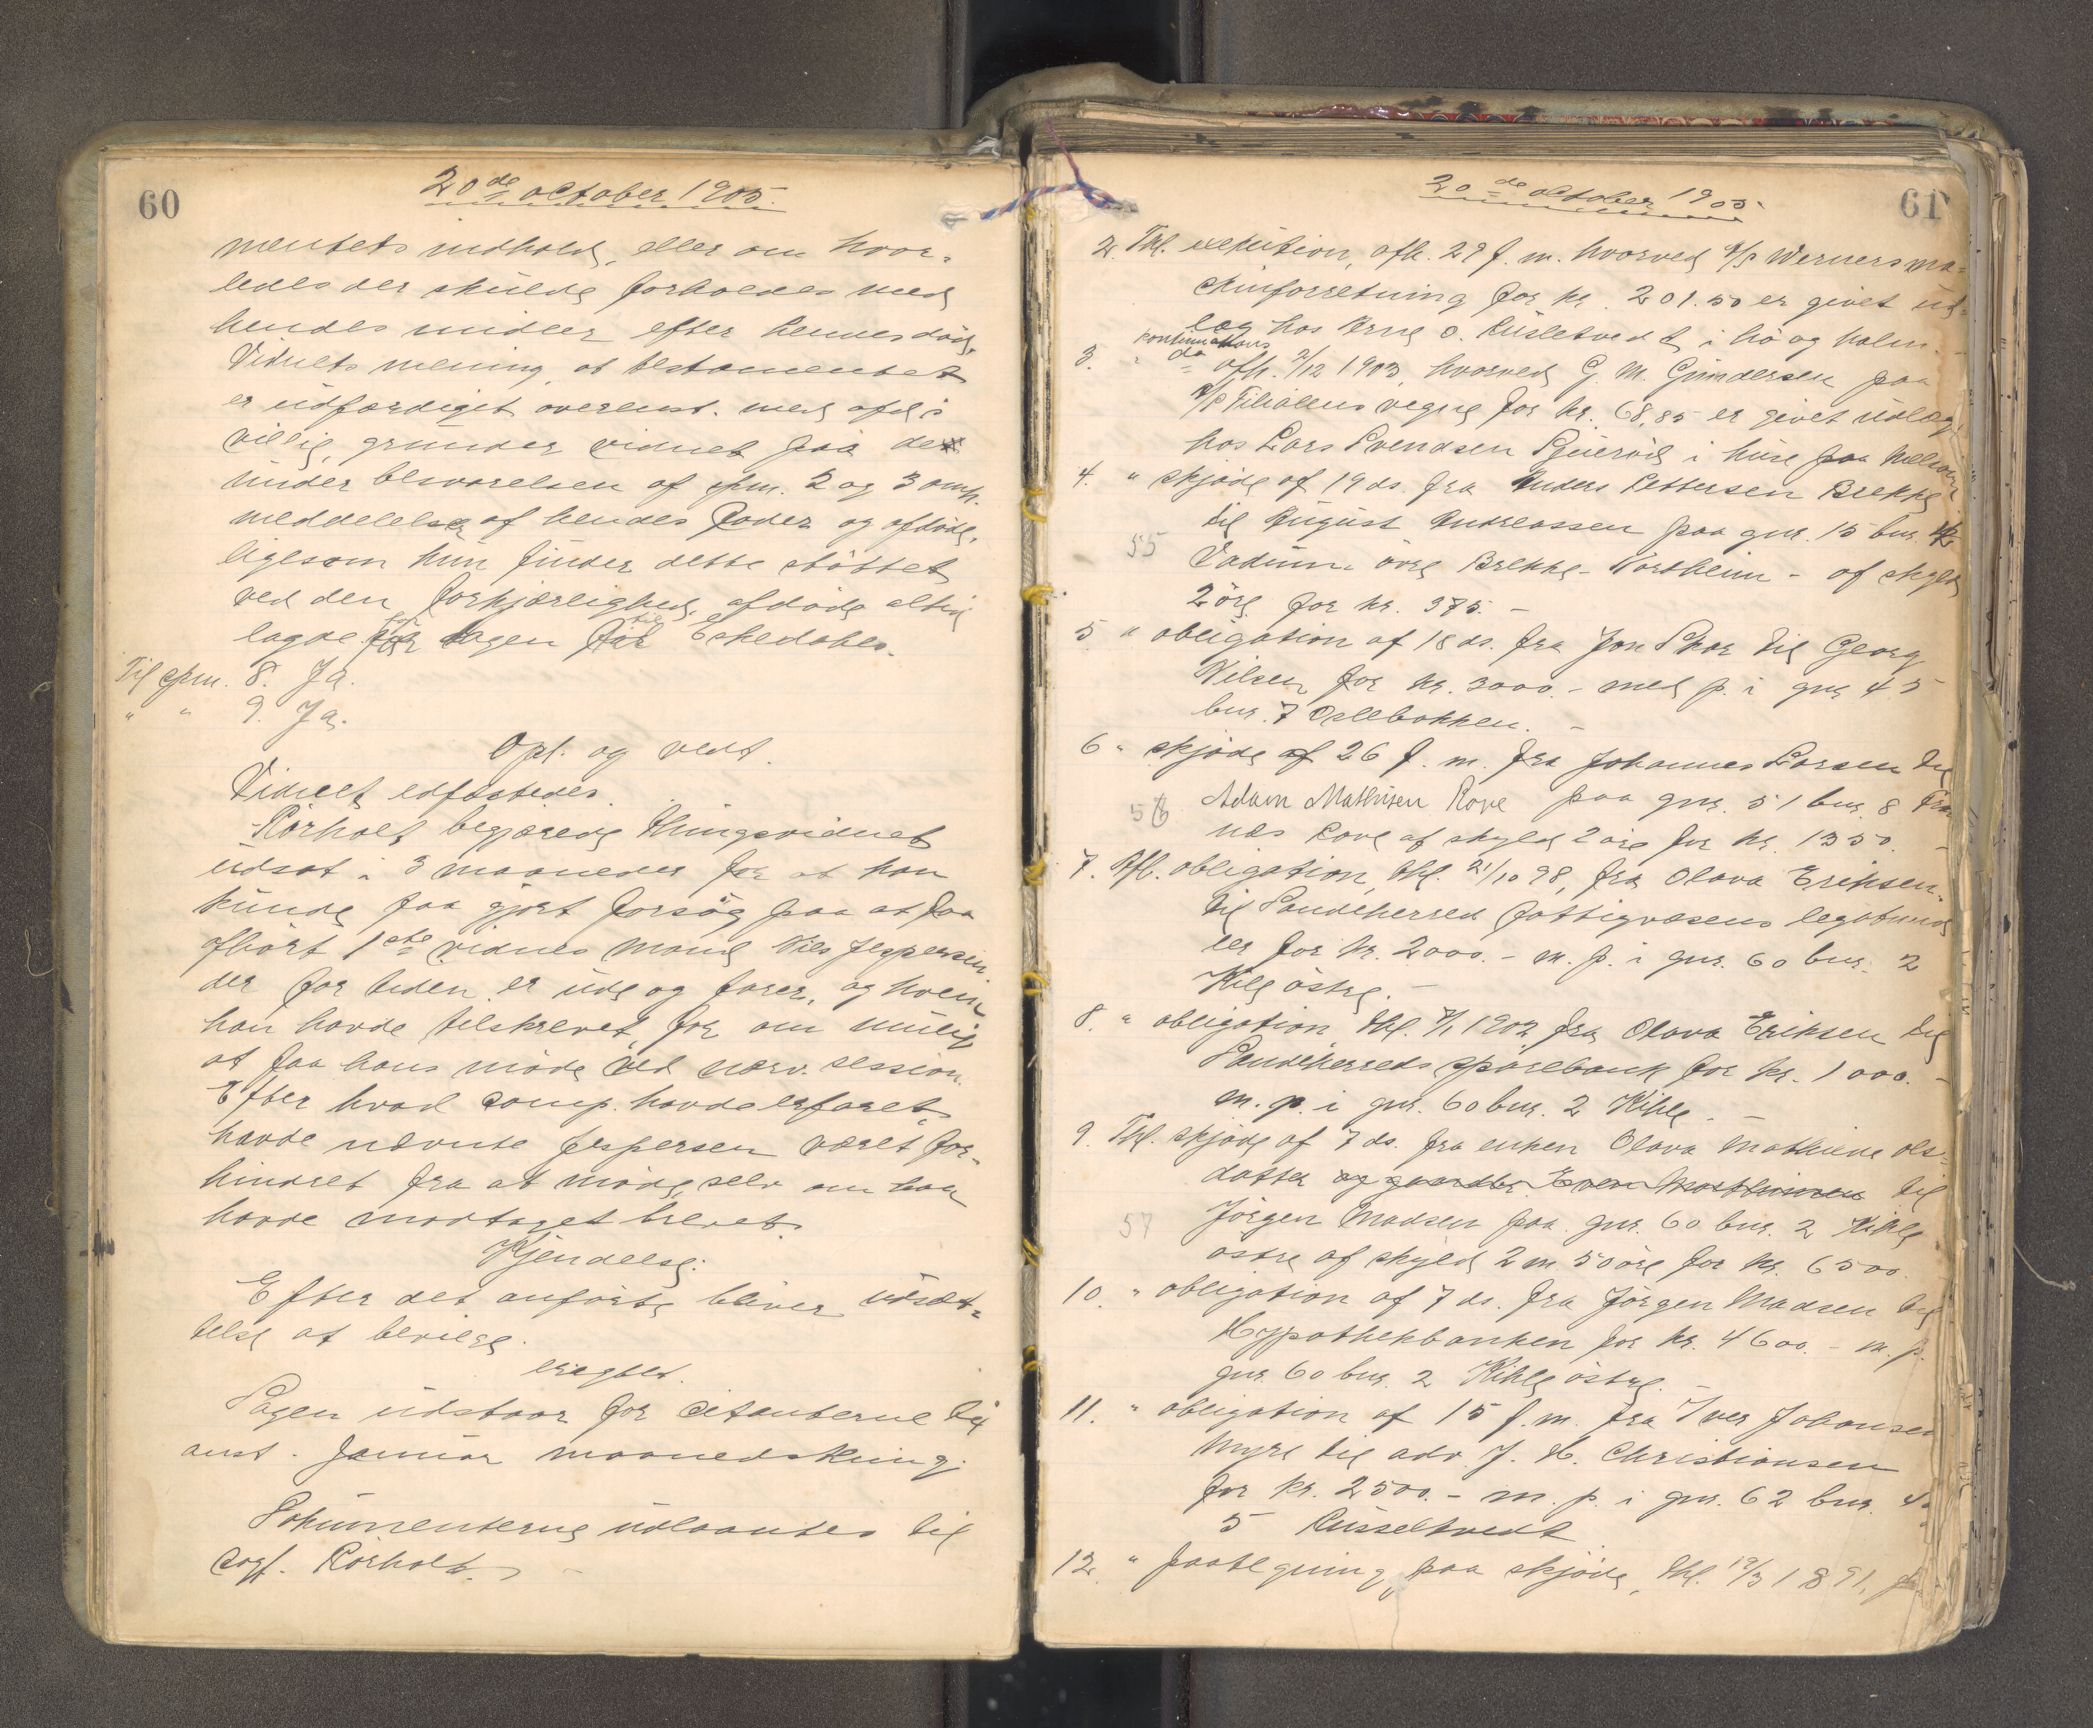 60
20de october 1905.
mentets indhold, eller om hvor-
ledes der skulde forholdes med
hendes midler efter hennes død.
Vidnets mening at testamentet
er udfærdiget overenst. med afd.s
villie, grunder vidnet paa de
under besvarelsen af spm. 2 og 3 omh.
meddelelser af hendes fader og afdøde,
ligesom hun finder dette støttet
ved den forkjærlighed, afdøde altid
lagde for dagen for Eskedahl.
Til spm. 8. Ja.
" " 9. Ja.
Opl. og vedt.
Vidnet edfæstedes.
Rørholt begjærede thingsvidnet
udsat i 3 maaneder for at han
kunde faa gjort forsøg paa at faa
afhørt 1ste vidnes mand Nils Jespersen
der for tiden er ude og farer, og hvem
han havde tilskrevet, for om mulig
at faa hans møde ved nærv. session.
Efter hvad comp. havde erfaret,
havde nævnte Jespersen været for-
hindret fra at møde, selv om han
havde modtaget brevet.
Kjendelse:
Efter det anførte bliver udsæt-
telse at bevilge.
eragtet.
Sagen udstaar for citanterne til
anst. Januar maanedsthing.
Dokumenterne udlaantes til
sagf. Rørholt.
61
20de oktober 1905.
2. Thl. exekution, afh. 29 f. m. hvorved A/S Werners ma-
skinforretning for kr. 201.50 er givet ud-
læg hos Arne O. Russeltvedt i hø og halm.
3. " kontinuations do afh. 2/12 1903, hvorved G. M. Gundersen paa
A/S Filialens vegne for kr. 68,85 er givet udlæg
hos Lars Svendsen i huse paa
4. " skjøde af 19 ds. fra Anders Pettersen Brekke
til August Andreassen paa gnr. 15 bnr.
55 Vadum øvre Brekke - Nordheim - af skyld
2 øre for kr. 375. -
5. " obligation af 18 ds. fra Jon Skar til Georg
Nilsen for kr. 3000. - med p. i gnr 45
bnr. 7 Oslebakken. -
6 " skjøde af 26 f. m. fra Johannes Larsen til
56 Adam Mathisen Rove paa gnr. 51 bnr. 8 Fra-
næs Rove af skyld 2 øre for kr. 1350. -
7. Afl. obligation, thl. 21/10 98, fra Olava Eriksen
til Sandeherred fattigvæsens legatmid-
ler for kr. 2000. - m. p. i gnr. 60 bnr. 2
Kile østre. -
8. " obligation thl. 1902 fra Olava Eriksen til
Sandeherreds sparebank for kr. 1000. -
m. p. i gnr. 60 bnr. 2 Kihle. -
9. Thl. skjøde af 7 ds. fra enken Olava Mathiene Ols-
datter og gaardbr. Even Mathiesen til
57 Jørgen Madsen paa gnr. 60 bnr. 2 Kihle
østre af skyld 2 m 50 øre for kr. 6500.
10. " obligation af 7 ds. fra Jørgen Madsen til
Hypothekbanken for kr. 4600. - m. p.
gnr. 60 bnr. 2 Kihle østre. -
11. " obligation af 15 f. m. fra Iver Johansen
Myre til adv. J. H. Christiansen
for kr. 2500. - m. p. i gnr. 62 bnr. 4
5 Russeltvedt
12. " paategning paa skjøde, thl. 19/3 1891,